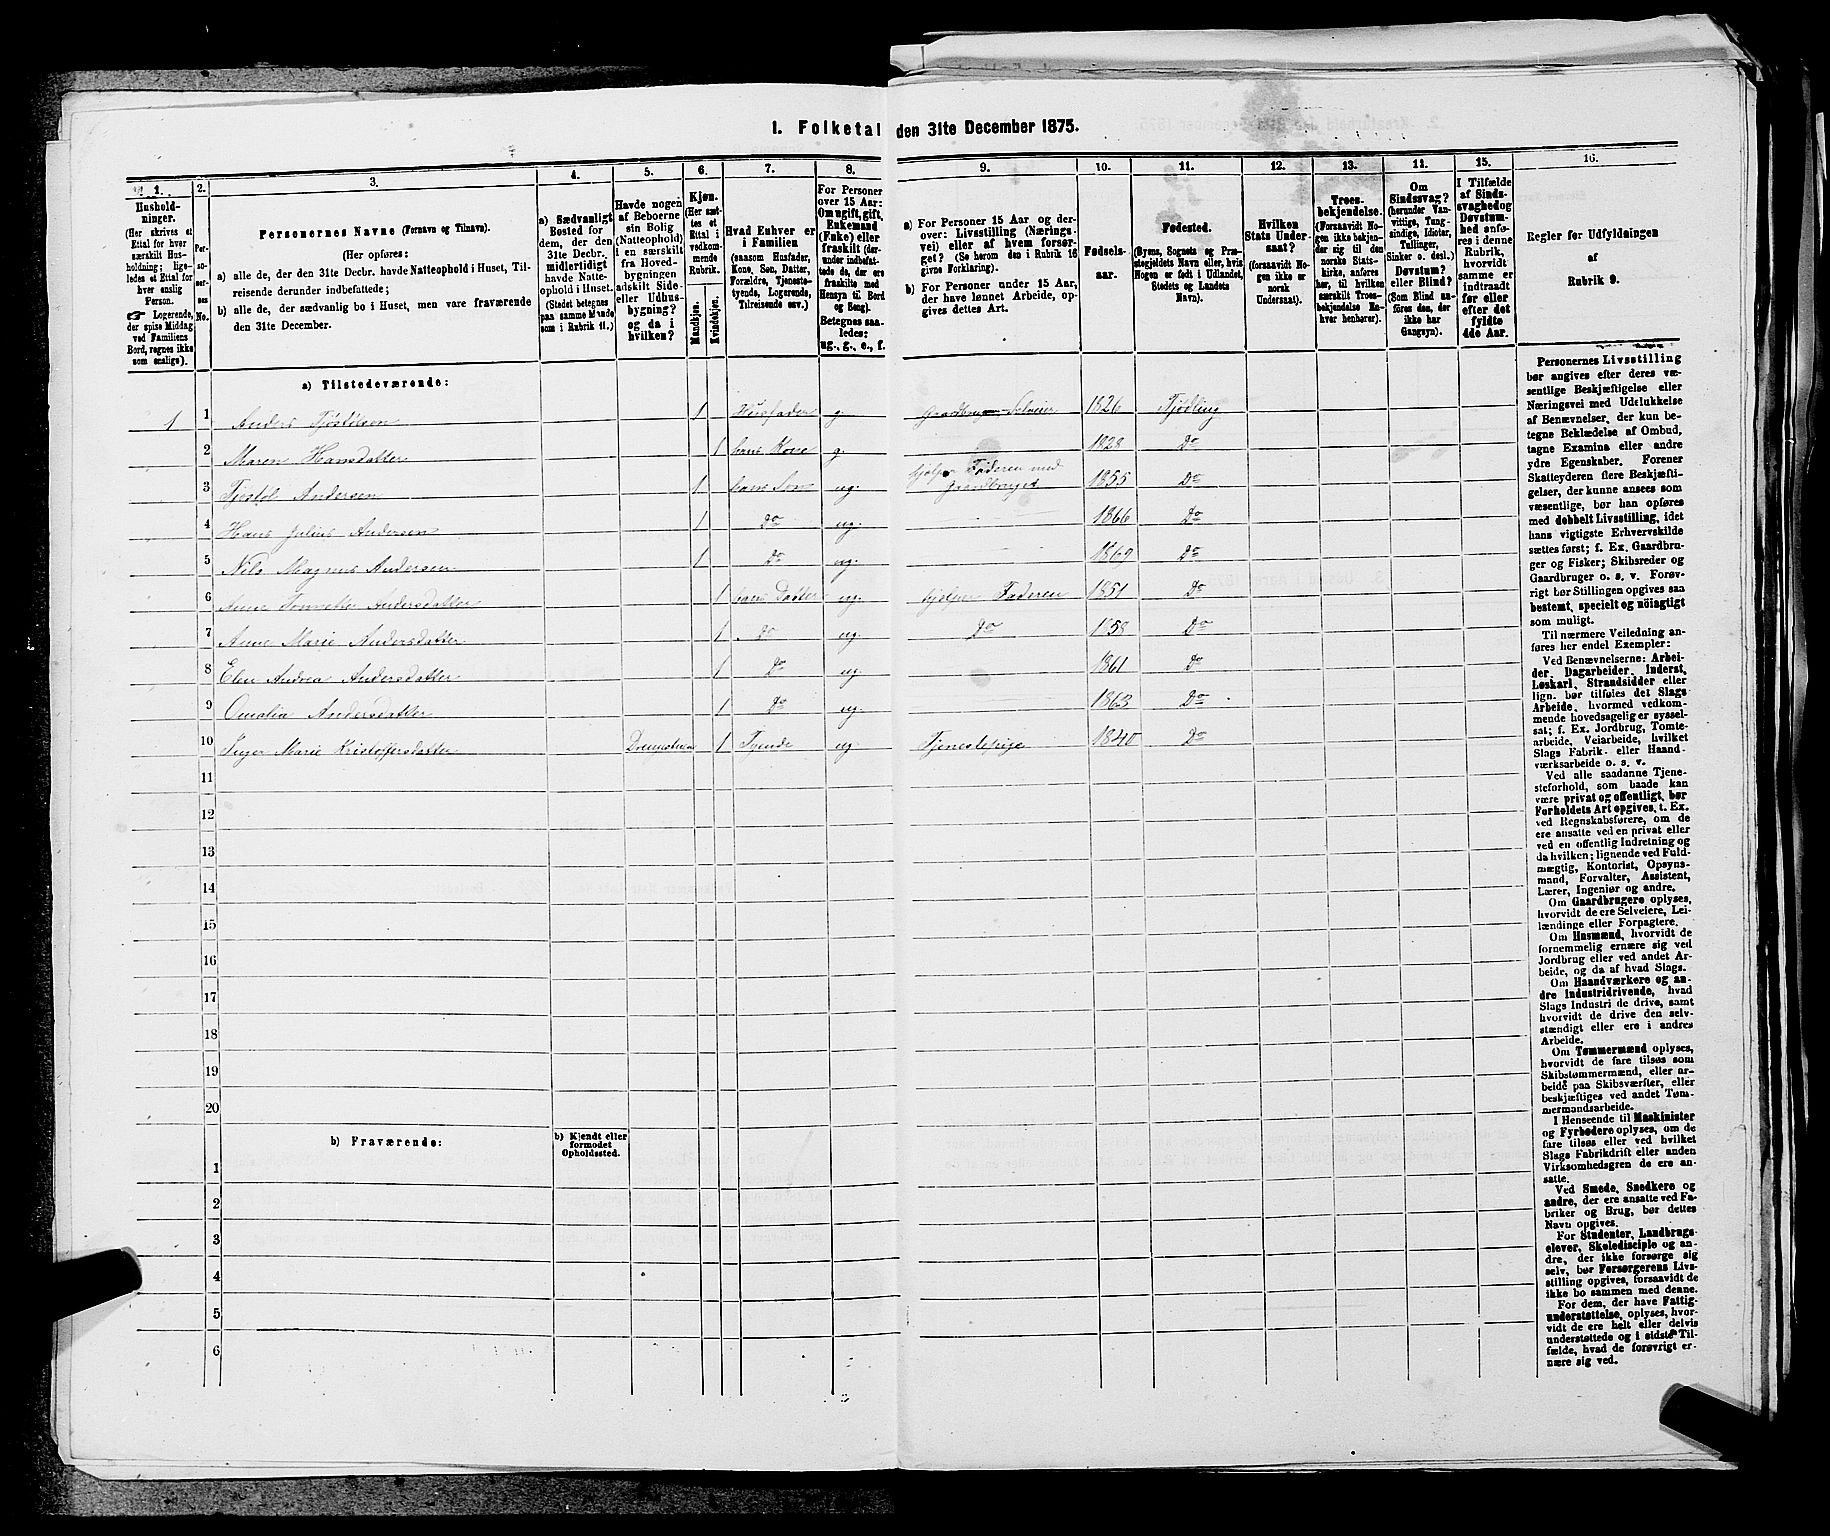 I. Folketal den 31te December 1875.
1.
Husholdninger.
(Her skrives et
Ettal for hver
særskilt Husholdning; ligeledes et Ettal for
hver enslig
Person.
☞ Logerende,
der spise Middag
ved Familiens
Bord, regnes ikke
som enslige).
2.
Personernes No.
3.
Personernes Navne (Fornavn og Tilnavn).
(Her opføres:
a) alle de, der den 31te Decbr. havde Natteophold i Huset, Tilreisende derunder indbefattede;
b) alle de, der sædvanlig bo i Huset, men vare fraværende
den 31te December.
4.
a) Sædvanligt
Bosted for
dem, der den
31te Decbr.
midlertidigt
havde Natteophold i Huset.
(Stedet betegnes
paa samme Maade
som i Rubrik 11.)
5.
Havde nogen
af Beboerne
sin Bolig
(Natteophold)
i en særskilt
fra Hovedbygningen
adskilt Side-
eller Udhusbygning?
og da i
hvilken?
6.
Kjøn.
(Her sættes et
Ettal i
vedkommende
Rubrik.
Mandkjøn.
Kvindekjøn.
7.
Hvad Enhver er
i Familien
(saasom Husfader,
Kone, Søn, Datter,
Forældre, Tjenestetyende, Logerende,
Tilreisende osv.)
8.
For Personer
over 15 Aar:
Om ugift, gift,
Enkemand
(Enke) eller
fraskilt (derunder indbefattede de, der ere
fraskilte med
Hensyn til Bord
og Seng).
Betegnes saaledes:
ug., g., e., f.
9.
a) For Personer 15 Aar og derover: Livsstilling (Næringsvei) eller af hvem forsørget? (Se herom den i Rubrik 16
givne Forklaring).
b) For Personer under 15 Aar,
der have lønnet Arbeide, opgives dettes Art.
10.
Fødselsaar.
11.
Fødested.
(Byens, Sognets og Præstegjeldets Navn eller, hvis
Nogen er født i Udlandet,
Stedets og Landets
Navn).
12.
Hvilken
Stats Undersaat?
(forsaavidt Nogen ikke er
norsk
Undersaat).
13.
Troesbekjendelse.
(Forsaavidt Nogen ikke bekjender sig til den
norske Statskirke, anføres
her, til hvilken
særskilt Troesbekjendelse Enhver henhører).
11.
Om
Sindssvag?
(herunder Vanvittige, Tungsindige, Idioter,
Tullinger,
Sinker o. desl.)
Døvstum?
eller Blind?
(Som Blind anføres den, der
ikke har
Gangsyn).
15.
I Tilfælde
af Sindssvaghed og
Døvstumhed anføres i denne
Rubrik,
hvorvidt
samme er
indtraadt
før eller
efter det
fyldte
4de Aar.
16.
Regler for Udfyldningen
af
Rubrik 9.
a) Tilstedeværende:
1 1 Anders Tjøstelsen 1 Husfader g. Gaardbruger Selveier 1826 Tjødling
2 Maren Hansdatter 1 hans Kone g. 1828 Do
3 Tjostøl Andersen 1 hans Søn ug. hjelper Faderen med Gaardbruget 1855 Do
4 Hans Julius Andersen 1 Do ug. 1866 Do
5 Nils Magnus Andersen 1 Do ug. 1869 Do
6 Anne Andersdatter 1 hans Datter ug. hjelper Faderen 1851 Do
7 Anne Marie Andersdatter 1 Do ug. Do 1858 Do
8 Elen Andrea Andersdatter 1 Do ug. 1861 Do
9 Omalia Andersdatter 1 Do ug. 1863 Do
10 Inger Marie Kristoffersdatter 1 Tyende ug Tjenestepige 1840 Do
11
12
13
14
15
16
17
18
19
20
b) Fraværende:
b) Kjendt eller
formodet
Opholdssted.
1
2
3
4
5
6
Personernes Livsstilling
bør angives efter deres væsentlige Beskjæftigelse eller
Næringsvei med Udelukkelse
af Benævnelser, der kun betegne Beklædelse af Ombud,
tagne Examina eller andre
ydre Egenskaber. Forener
Skatteyderen flere Beskjæftigelser, der kunne ansees som
væsentlige, bør han opføres
med dobbelt Livsstilling, idet
hans vigtigste Erhvervskilde
sættes først; f. Ex. Gaardbruger og Fisker; Skibsreder og
Gaardbruger o. s. v. Forøvrigt bør Stillingen opgives saa
bestemt, specielt og nöiagtigt
som muligt.
Til nærmere Veiledning anføres her endel Exempler:
Ved Benævnelserne: Arbeider, Dagarbeider, Inderst,
Løskarl, Strandsidder eller
lign. bør tilføies det Slags
Arbeide, hvormed vedkommende hovedsagelig er sysselsat; f. Ex. Jordbrug, Tomtearbeide, Veiarbeide, hvilket
Slags Fabrik- eller Haandværksarbeide o. s. v.
Ved alle saadanne Tjenesteforhold, som baade kan
være privat og offentligt, bør
Forholdets Art opgives, t. Ex.
ved Regnskabsførere, om de
ere ansatte ved en privat eller
ved en offentlig Indretning og
da hvilken; lignende ved Fuldmægtig, Kontorist, Opsynsmand, Forvalter, Assistent,
Lærer, Ingeniør og andre.
Om Gaardbrugere oplyses,
hvorvidt de ere Selveiere, Leilændinge eller Forpagtere.
Om Husmænd, hvorvidt de
fornemmelig ernære sig ved
Jordbrug eller ved andet Arbeide, og da af hvad Slags.
Om Haandværkere og andre Industridrivende, hvad
Slags Industri de drive, samt
hvorvidt de drive den selvstændigt eller ere i andres
Arbeide.
Om Tømmermænd oplyses,
hvorvidt de fare tilsøs som
Skibstømmermænd, eller arbeide paa Skibsværfter, eller
beskjæftiges ved andet Tømmermandsarbeide.
I Henseende til Maskinister
og Fyrbødere oplyses, om de
fare tilsøs eller ved hvilket
Slags Fabrikdrift eller anden
Virksomhedsgren de ere ansatte.
Ved Smede, Snedkere og
andre, der ere ansatte ved Fabriker og Brug, bør dettes
Navn opgives.
For Studenter, Landbrugselever, Skoledisciple og andre, der ikke forsørge sig
selv, bør Forsørgerens Livsstilling opgives, forsaavidt de
ikke bo sammen med denne.
For dem, der have Fattigunderstøttelse, oplyses, hvorvidt de ere helt eller delvis
understøttede og i sidste Tilfælde, hvad de forøvrigt ernære sig ved.